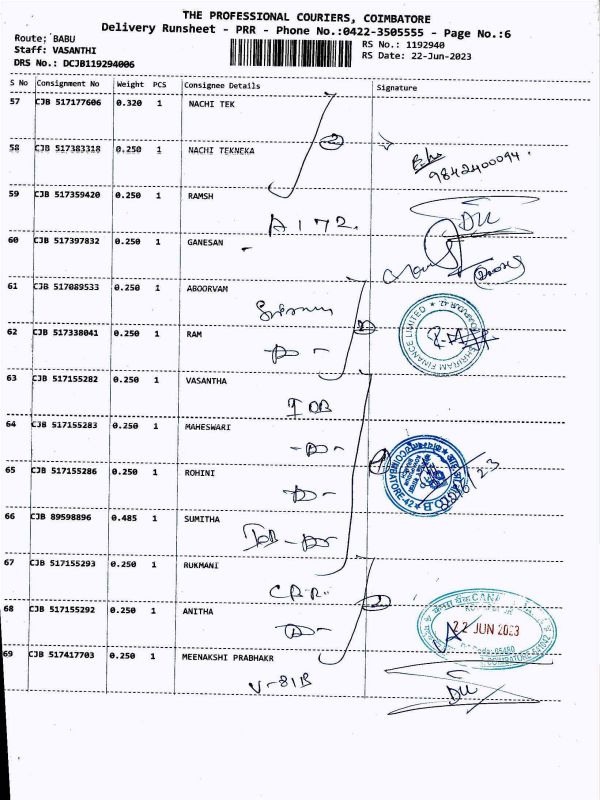 THE PROFESSIONAL COURIERS, COIMBATORE
Delivery Runsheet - PRR - Phone No.:0422-3505555 - Page No.:6
Route: BABU
Staff: VASANTHI
DRS No.: DCJB119294006
RS No.: 1192940
RS Date: 22-Jun-2023
S No Consignment No Weight PCS Consignee Details Signature
57 CJB 517177606 0.320 1 NACHI TEK
2
58 CJB 517383318 0.250 1 NACHI TEKNEKA
9842400094.
59 CJB 517359420 0.250 1 RAMSH
A 172.
60 CJB 517397832 0.250 1 GANESAN
61 CJB 517089533 0.250 1 ABOORVAM
SHRIRAM FINANCE LIMITED
62 CJB 517338041 0.250 1 RAM
63 CJB 517155282 0.250 1 VASANTHA
IOB
64 CJB 517155283 0.250 1 MAHESWARI
65 CJB 517155286 0.250 1 ROHINI
COIMBATORE-42
66 CJB 89598896 0.485 1 SUMITHA
IOB
67 CJB 517155293 0.250 1 RUKMANI
2
68 CJB 517155292 0.250 1 ANITHA
22 JUN 2023
69 CJB 517417703 0.250 1 MEENAKSHI PRABHAKR
V-81B